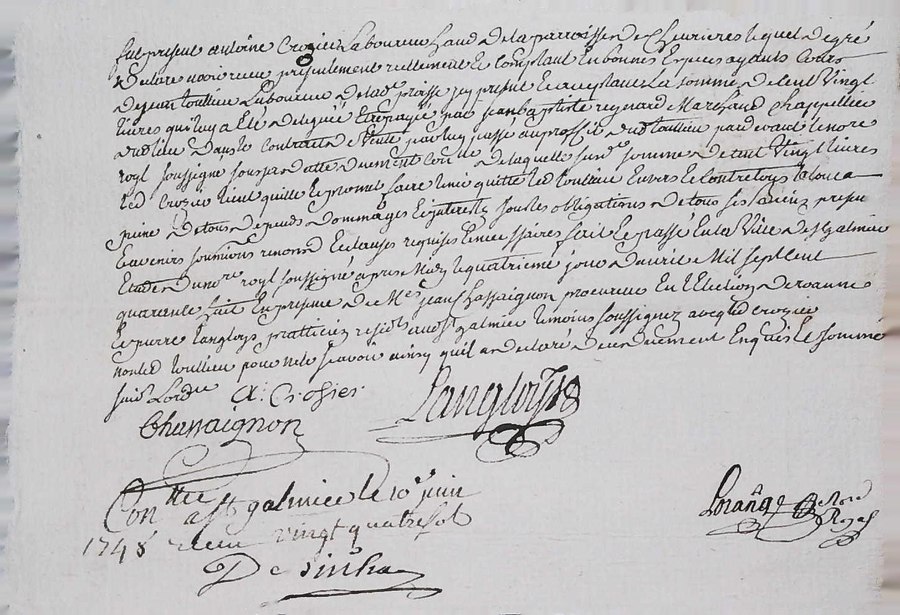 fut present antoine Crozier Laboureur hand de la parroisse de Chevrieres lequel de gré
declare avoir receu presentement reellement et comptant En bonnes Especes ayants Cours
de jean toullieu Laboureur de lad. proisse jcy present Et acceptant La somme de Cent Vingt
Livres qui luy a Eté deleguée Et payée par jean baptiste regnard Marchand chappellier
dud lieu dans le Contrat de Vente par luy passé au proffit dud toullieu pardevant le no.re
royl soussigné sous sa datte duement Con.llé de laquelle susd. somme de Cent Vingt Livres
led Crozier tient quitte Et promet faire tenir quitte led toullieu Envers Et Contre tous a
peyne de tous depends dommages Et interests sous les obligations de tous ses biens presents
Et avenirs soumissions renond. Et clauses requises Et necessaires fait Et passé En la Ville de St galmier
Etude du no.re royl soussigné apres Midy le quatrieme jour d'avril Mil sept Cent
quarente huit En presence de Me jean Chassaignon procureur En l'Election de roanne
Et pierre Langloys pratticien resid.ts aud St galmier temoins soussignez avec led Crozier
non led toullieu pour ne le sçavoir ainsy quil a declaré de ce duement Enquis Et sommé
suiv. Lord.ce
A: Crosier
Chassaignon
Langloys
Con.llée a St galmier le 10e juin
1748 receu vingt quatre sols
Lorange Nore
Royal